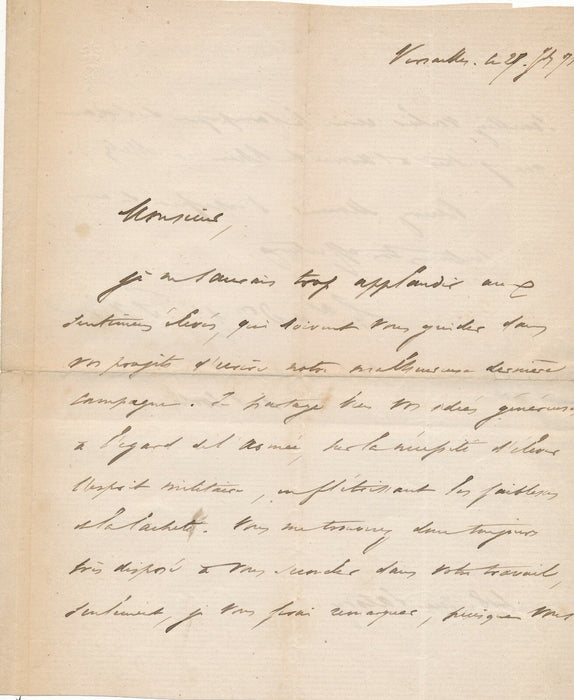 Versailles. le 27.
Monsieur,
je ne saurais trop applaudir aux
sentimens élevés, qui doivent vous guider dans
vos projets d'écrire notre malheureuse dernière
campagne. Je partage vos idées généreuses
à l'égard de l'armée, sur la nécessité d'élever
l'esprit militaire, en flétrissant les faiblesses
et la lacheté. Vous me trouverez donc toujours
très disposé à vous seconder dans votre travail,
seulement, je vous ferai remarquer, puisque vous